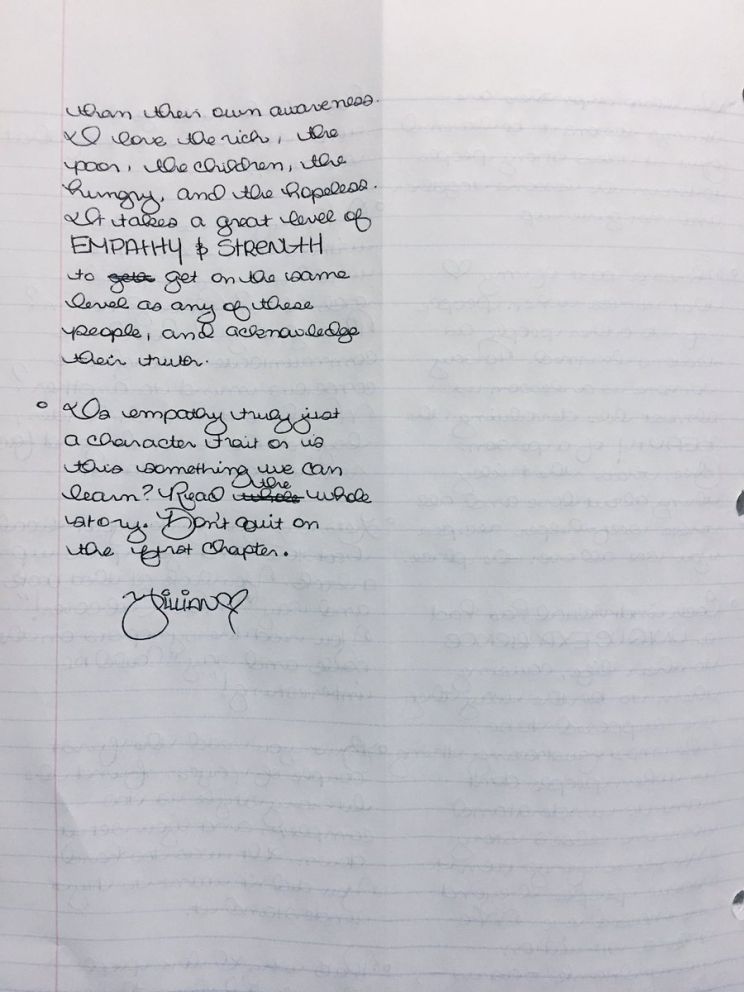 than their own awareness.
I love the rich, the
poor, the children, the
hungry, and the hopeless.
It takes a great level of
EMPATHY & STRENGTH
to get on the same
level as any of these
people, and acknowledge
their truth.
° Is empathy truly just
a character trait or is
this something we can
learn? Read the whole
story. Don't quit on
the first chapter.